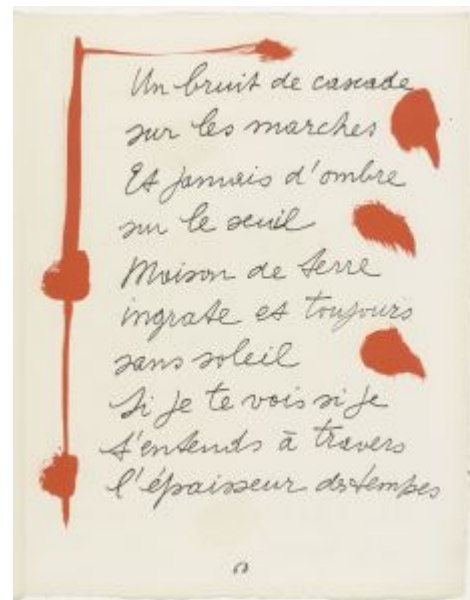 Un bruit de cascade
sur les marches
Et jamais d'ombre
sur le seuil
Maison de terre
ingrate et toujours
sans soleil
Si je te vois si je
t'entends à travers
l'épaisseur des tempes